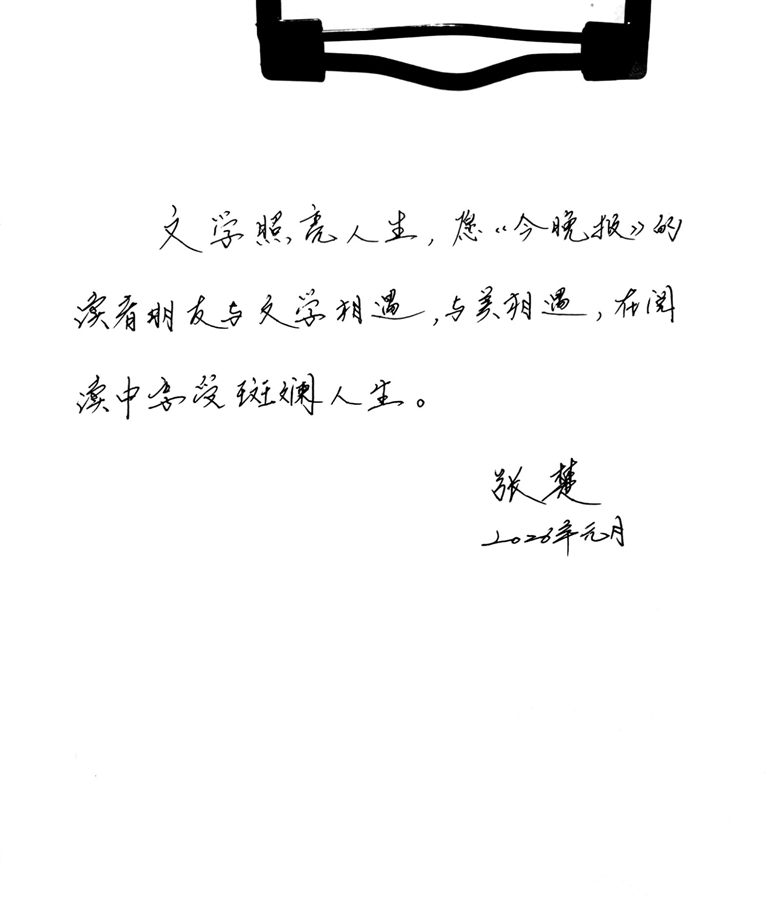 文学照亮人生，愿《今晚报》的
读者朋友与文学相遇，与美相遇，在阅
读中享受斑斓人生。
张楚
2026年元月